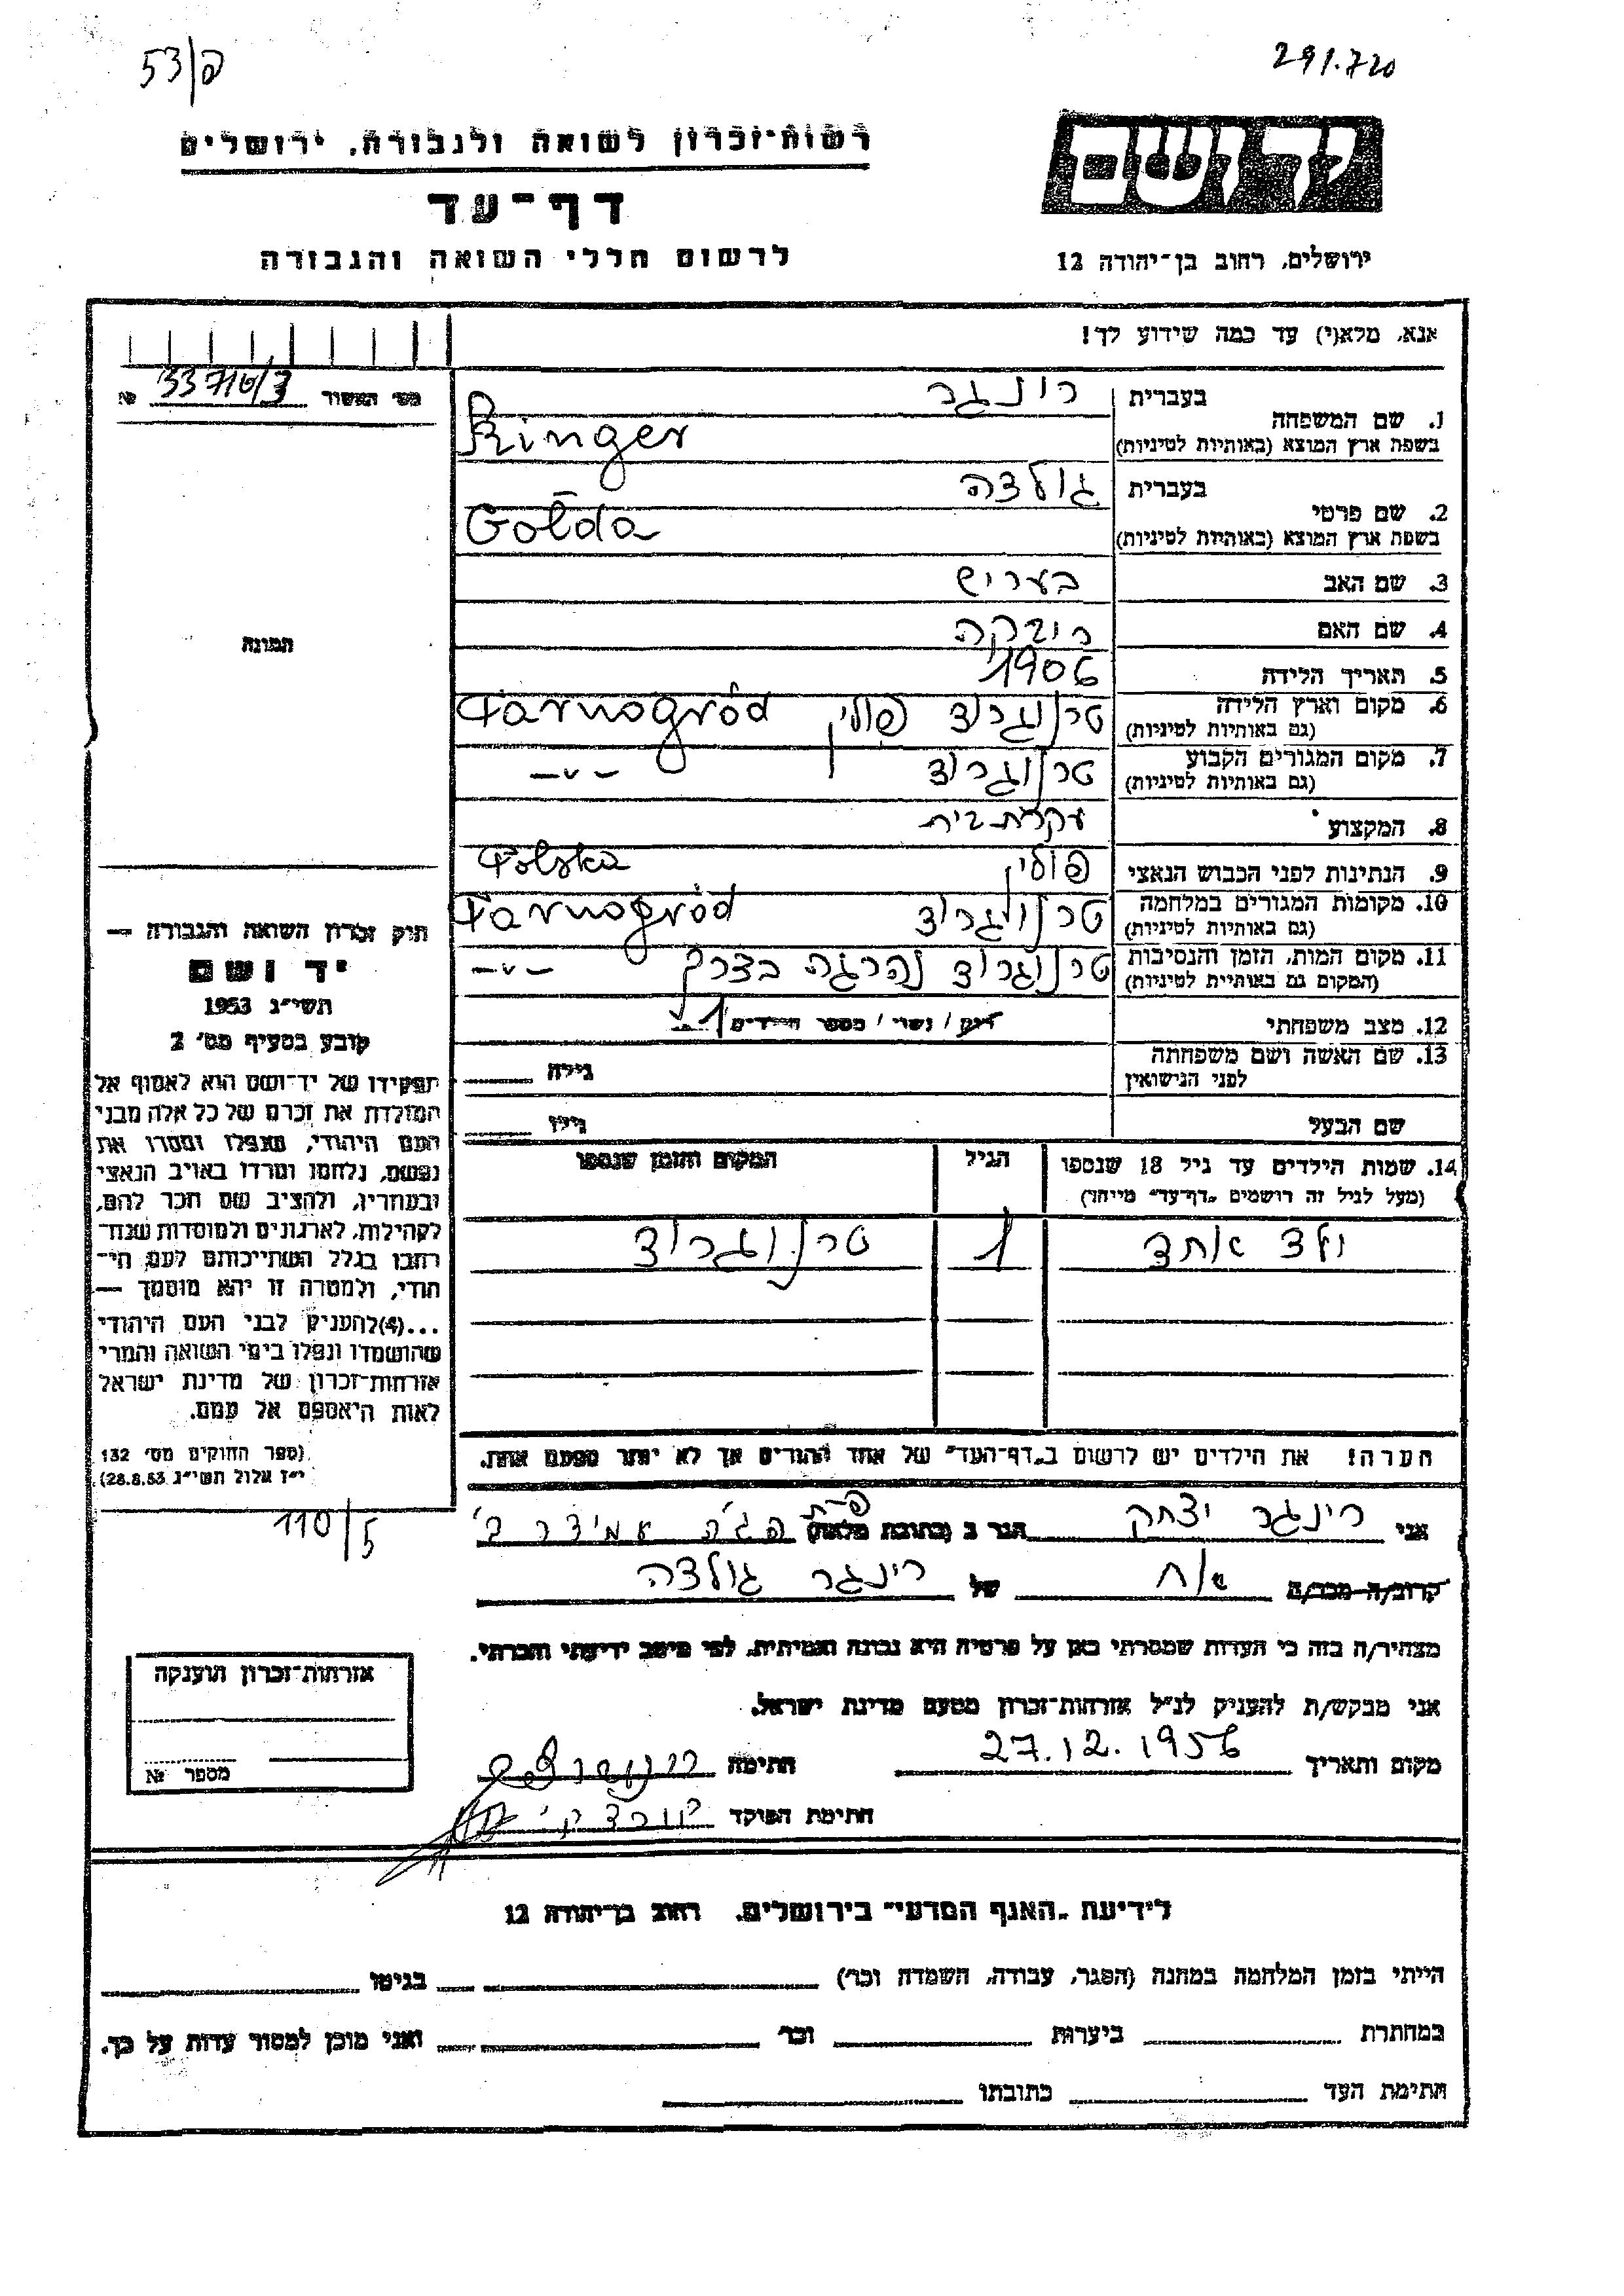 53/פ
291.720
רשות-זכרון לשואה ולגבורה, ירושלים
יד ושם
דף-עד
לרשום חללי השואה והגבורה
ירושלים, רחוב בן-יהודה 12
אנא, מלא(י) עד כמה שידוע לך!
מס' האשור 33716/3 №
1. שם המשפחה בעברית רינגר
בשפת ארץ המוצא (באותיות לטיניות) Ringer
2. שם פרטי בעברית גולדה
בשפת ארץ המוצא (באותיות לטיניות) Golda
3. שם האב בעריש
4. שם האם ריבקה
5. תאריך הלידה 1906
6. מקום וארץ הלידה טרנוגרוד פולין Tarnogród
(גם באותיות לטיניות)
7. מקום המגורים הקבוע טרנוגרוד -"-
(גם באותיות לטיניות)
8. המקצוע עקרת בית
9. הנתינות לפני הכבוש הנאצי פולין Polska
10. מקומות המגורים במלחמה טרנוגרוד Tarnogród
(גם באותיות לטיניות)
11. מקום המות, הזמן והנסיבות טרנוגרוד נהרגה בדרך -"-
(המקום גם באותיות לטיניות)
12. מצב משפחתי רוק / נשוי / מספר הילדים 1
13. שם האשה ושם משפחתה גילה
לפני הנישואין
שם הבעל גילו
14. שמות הילדים עד גיל 18 שנספו הגיל המקום והזמן שנספו
(מעל לגיל זה רושמים "דף-עד" מיוחד)
ולד אחד 1 טרנוגרוד
הערה! את הילדים יש לרשום ב"דף-העד" של אחד ההורים אך לא יותר מפעם אחת.
תמונה
חוק זכרון השואה והגבורה —
יד ושם
תשי"ג 1953
קובע בסעיף מס' 2
תפקידו של יד-ושם הוא לאסוף אל
המולדת את זכרם של כל אלה מבני
העם היהודי, שנפלו ומסרו את
נפשם, נלחמו ומרדו באויב הנאצי
ובעוזריו, ולהציב שם וזכר להם,
לקהילות, לארגונים ולמוסדות שנח-
רבו בגלל השתייכותם לעם הי-
הודי, ולמטרה זו יהא מוסמך —
...(4)להעניק לבני העם היהודי
שהושמדו ונפלו בימי השואה והמרי
אזרחות-זכרון של מדינת ישראל
לאות היאספם אל עמם.
(ספר החוקים מס' 132
י"ז אלול תשי"ג 28.8.53)
110/5
אני רינגר יצחק הגר ב (כתובת מלאה) פ"ת פג'ה עמידר ב'
קרוב/ה מכר/ה אח של רינגר גולדה
מצהיר/ה בזה כי העדות שמסרתי כאן על פרטיה היא נכונה ואמיתית, לפי מיטב ידיעתי והכרתי.
אני מבקש/ת להעניק לנ"ל אזרחות-זכרון מטעם מדינת ישראל.
מקום ותאריך 27.12.1956 חתימה
חתימת הפוקד
אזרחות-זכרון הוענקה
מספר №
לידיעת "האגף המדעי" בירושלים, רחוב בן-יהודה 12
הייתי בזמן המלחמה במחנה (הסגר, עבודה, השמדה וכו') בגיטו
במחתרת ביערות וכו' ואני מוכן למסור עדות על כך.
חתימת העד כתובתו